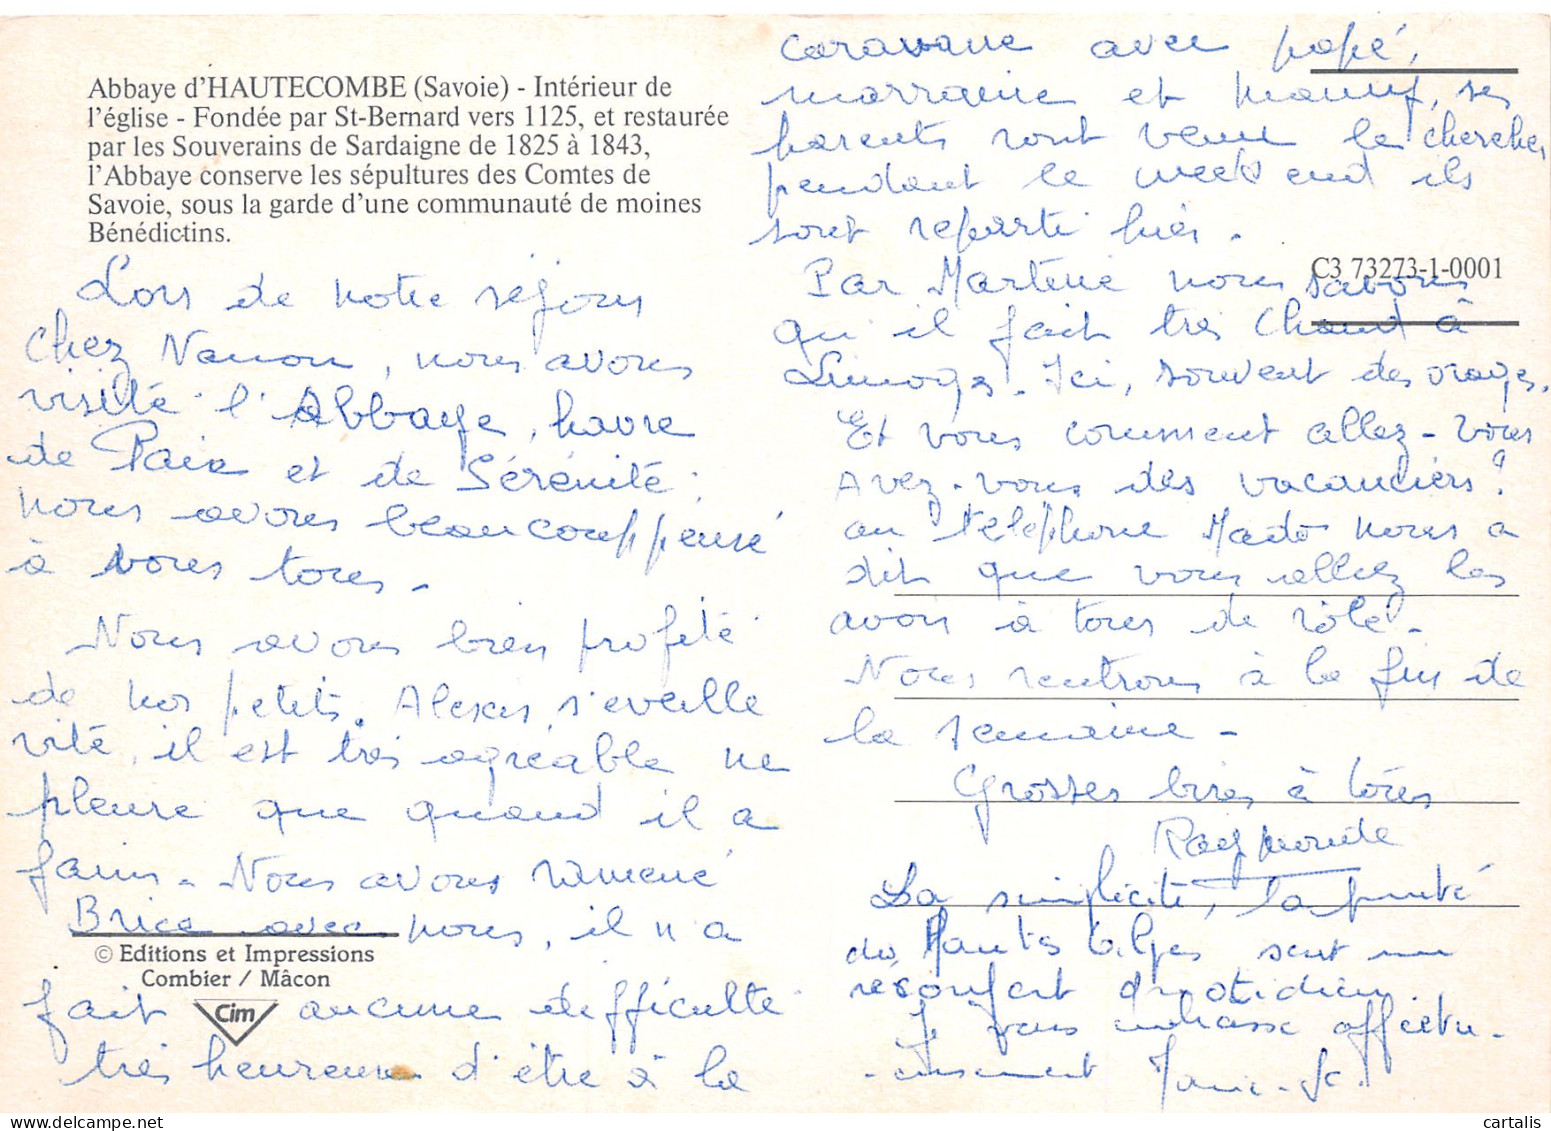 Abbaye d'HAUTECOMBE (Savoie) - Intérieur de
l'église - Fondée par St-Bernard vers 1125, et restaurée
par les Souverains de Sardaigne de 1825 à 1843,
l'Abbaye conserve les sépultures des Comtes de
Savoie, sous la garde d'une communauté de moines
Bénédictins.
Lors de notre séjour
chez Nanou, nous avons
visité l'Abbaye, havre
de Paix et de Sérénité :
nous avons beaucoup pensé
à vous tous.
Nous avons bien profité
de nos petits. Alexis s'éveille
vite, il est très agréable ne
pleure que quand il a
faim. Nous avons ramené
Brice avec nous, il n'a
fait aucune difficulté
très heureux d'être à la
© Editions et Impressions
Combier / Mâcon
Cim
caravane avec papé,
marraine et ses
parents sont venu le chercher
pendant le week end ils
sont reparti hier.
C3 73273-1-0001
Par Martine nous savons
qu'il fait très chaud à
Limoges. Ici, souvent des orages.
Et vous comment allez-vous
Avez-vous des vacanciers ?
au téléphone Mado nous a
dit que vous alliez les
avoir à tour de rôle.
Nous rentrons à la fin de
la semaine -
Grosses bises à tous
Raymonde
La simplicité, la pureté
des Hautes Alpes sont un
réconfort quotidien.
Je vous embrasse affectu-
-eusement